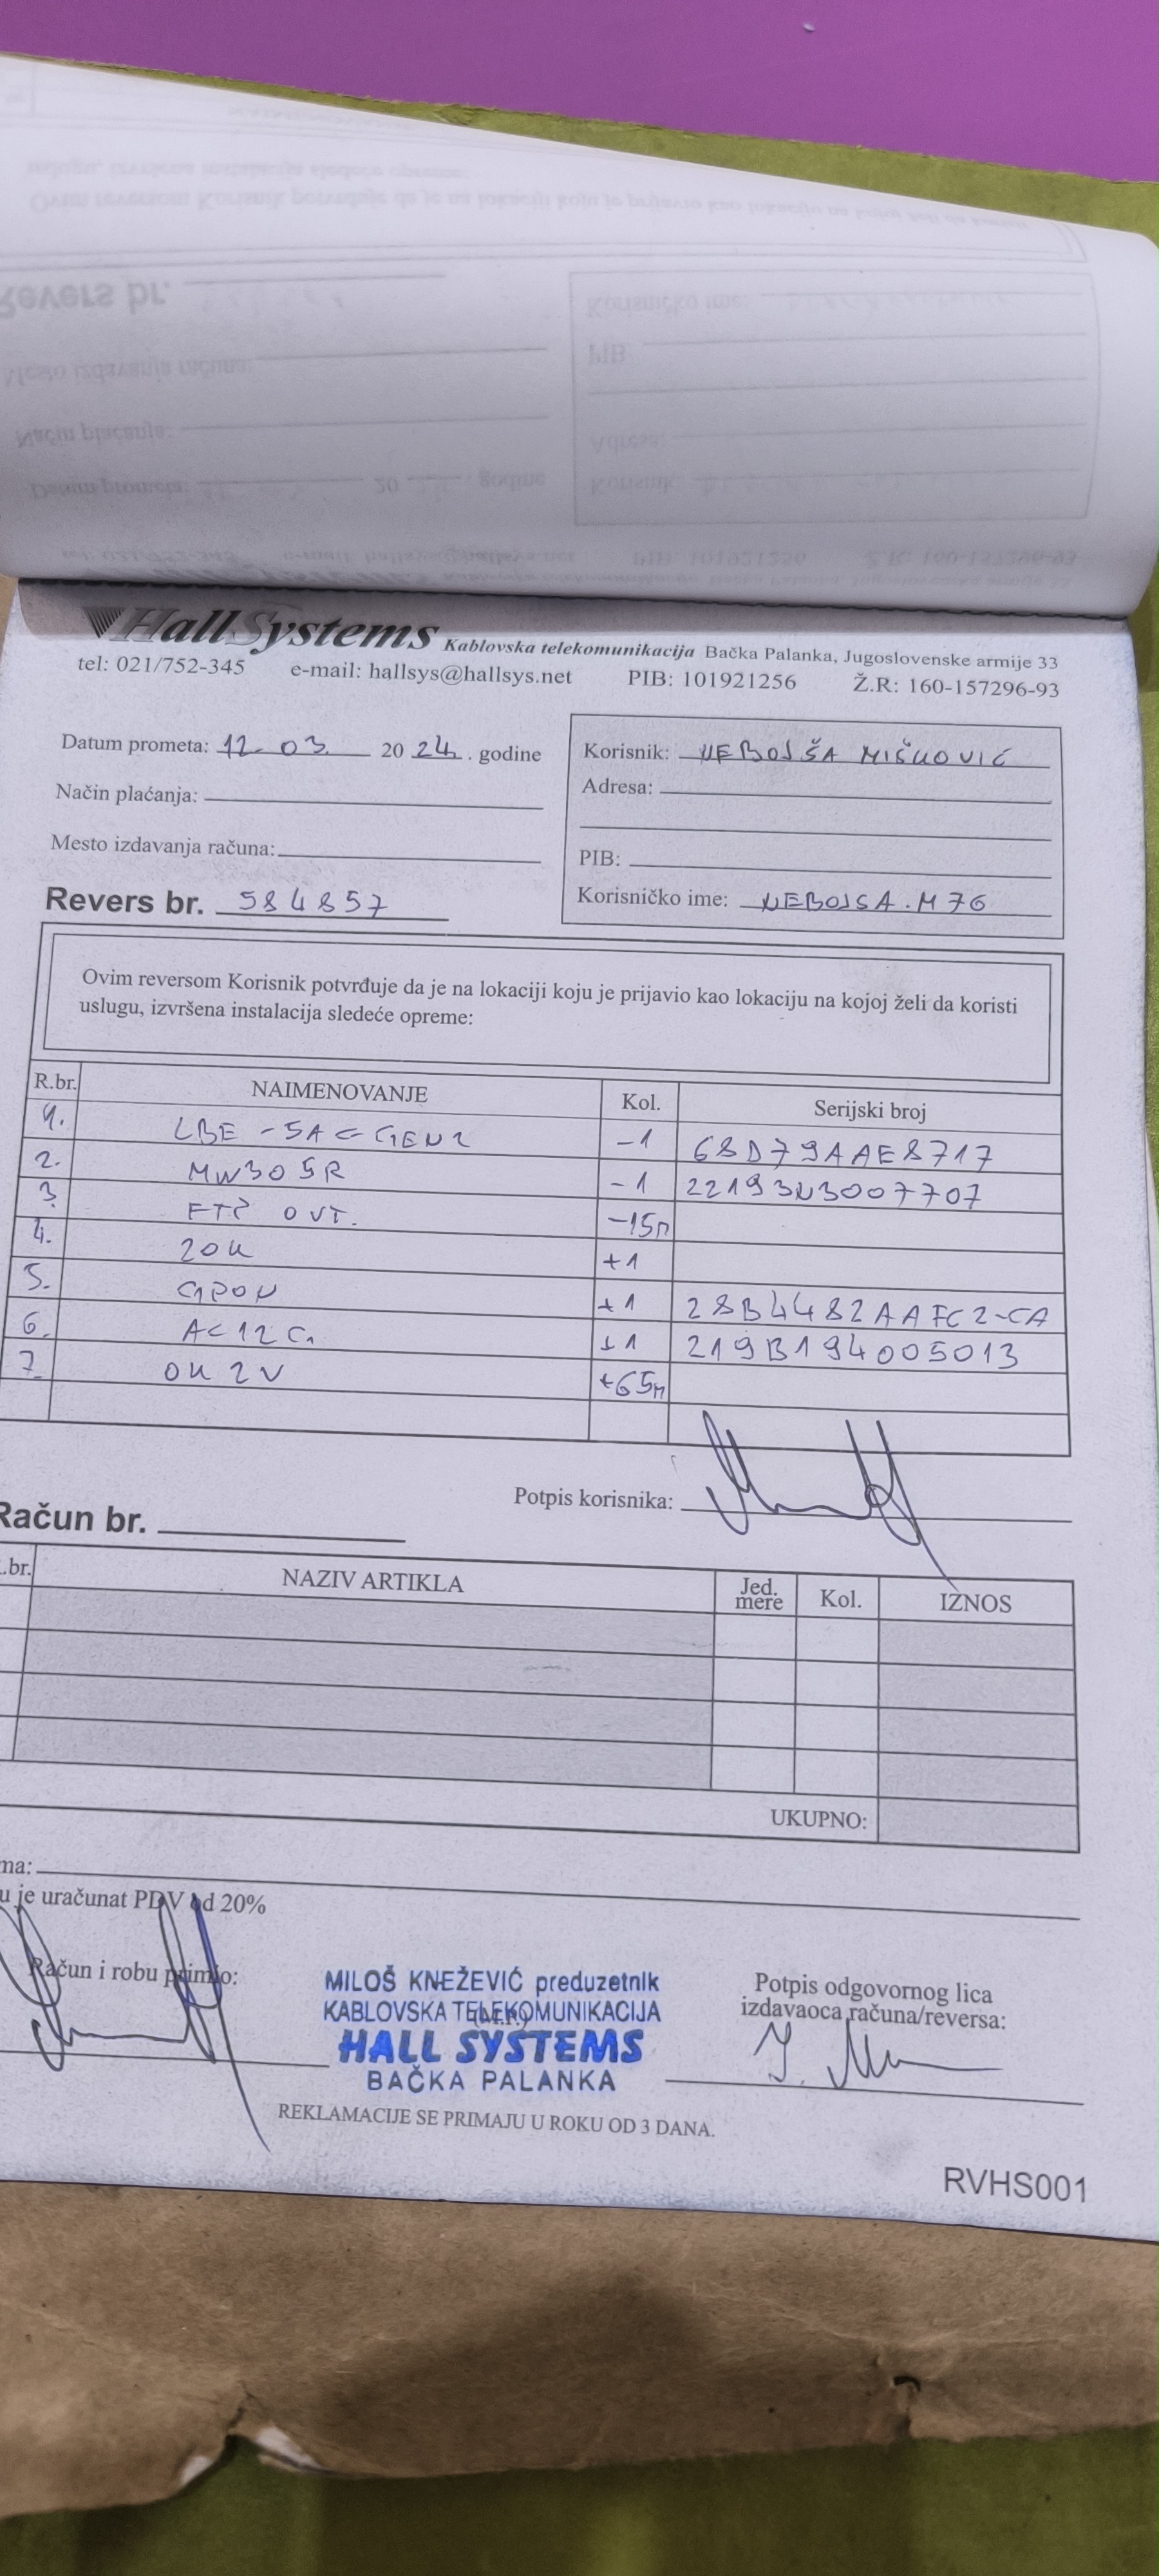 HallSystems Kablovska telekomunikacija Bačka Palanka, Jugoslovenske armije 33
tel: 021/752-345 e-mail: hallsys@hallsys.net PIB: 101921256 Ž.R: 160-157296-93
Datum prometa: 12.03. 2024. godine
Način plaćanja:
Mesto izdavanja računa:
Revers br. 584857
Korisnik: NEBOJŠA MIŠKOVIĆ
Adresa:
PIB:
Korisničko ime: NEBOJSA.M76
Ovim reversom Korisnik potvrđuje da je na lokaciji koju je prijavio kao lokaciju na kojoj želi da koristi
uslugu, izvršena instalacija sledeće opreme:
R.br. NAIMENOVANJE Kol. Serijski broj
1. LBE-5AC-GEN2 -1 68D79AAE8717
2. MW305R -1 22193N3007707
3. FTP OUT. -15m
4. ZOK +1
5. GPON +1 28B4482AAFC2-CA
6. AC12G +1 219B194005013
7. OK 2V +65m
Potpis korisnika:
Račun br.
.br. NAZIV ARTIKLA Jed. mere Kol. IZNOS
UKUPNO:
ma:
u je uračunat PDV od 20%
Račun i robu primio:
MILOŠ KNEŽEVIĆ preduzetnik
KABLOVSKA TELEKOMUNIKACIJA
(M.P.)
HALL SYSTEMS
BAČKA PALANKA
Potpis odgovornog lica
izdavaoca računa/reversa:
REKLAMACIJE SE PRIMAJU U ROKU OD 3 DANA.
RVHS001